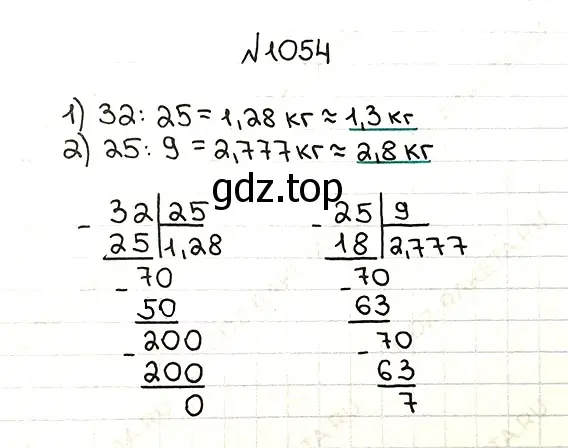 №1054
1) 32 : 25 = 1,28 кг ≈ 1,3 кг
2) 25 : 9 = 2,777 кг ≈ 2,8 кг
gdz.top
- 32 | 25 - 25 | 9
25 | 1,28 18 | 2,777
- 70 - 70
50 63
- 200 - 70
200 63
0 7